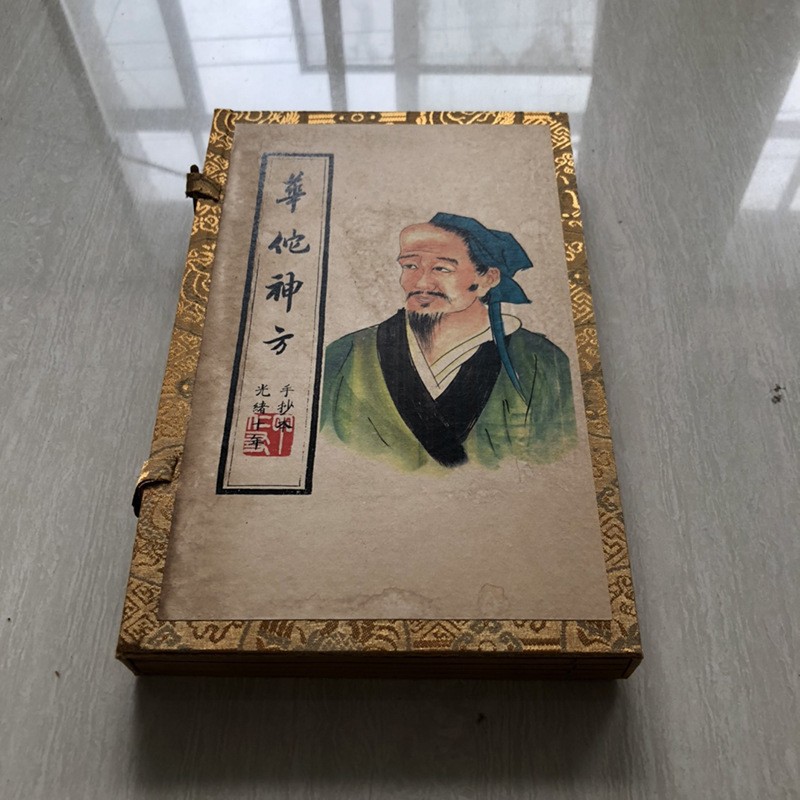 華佗神方
手抄本
光绪十年